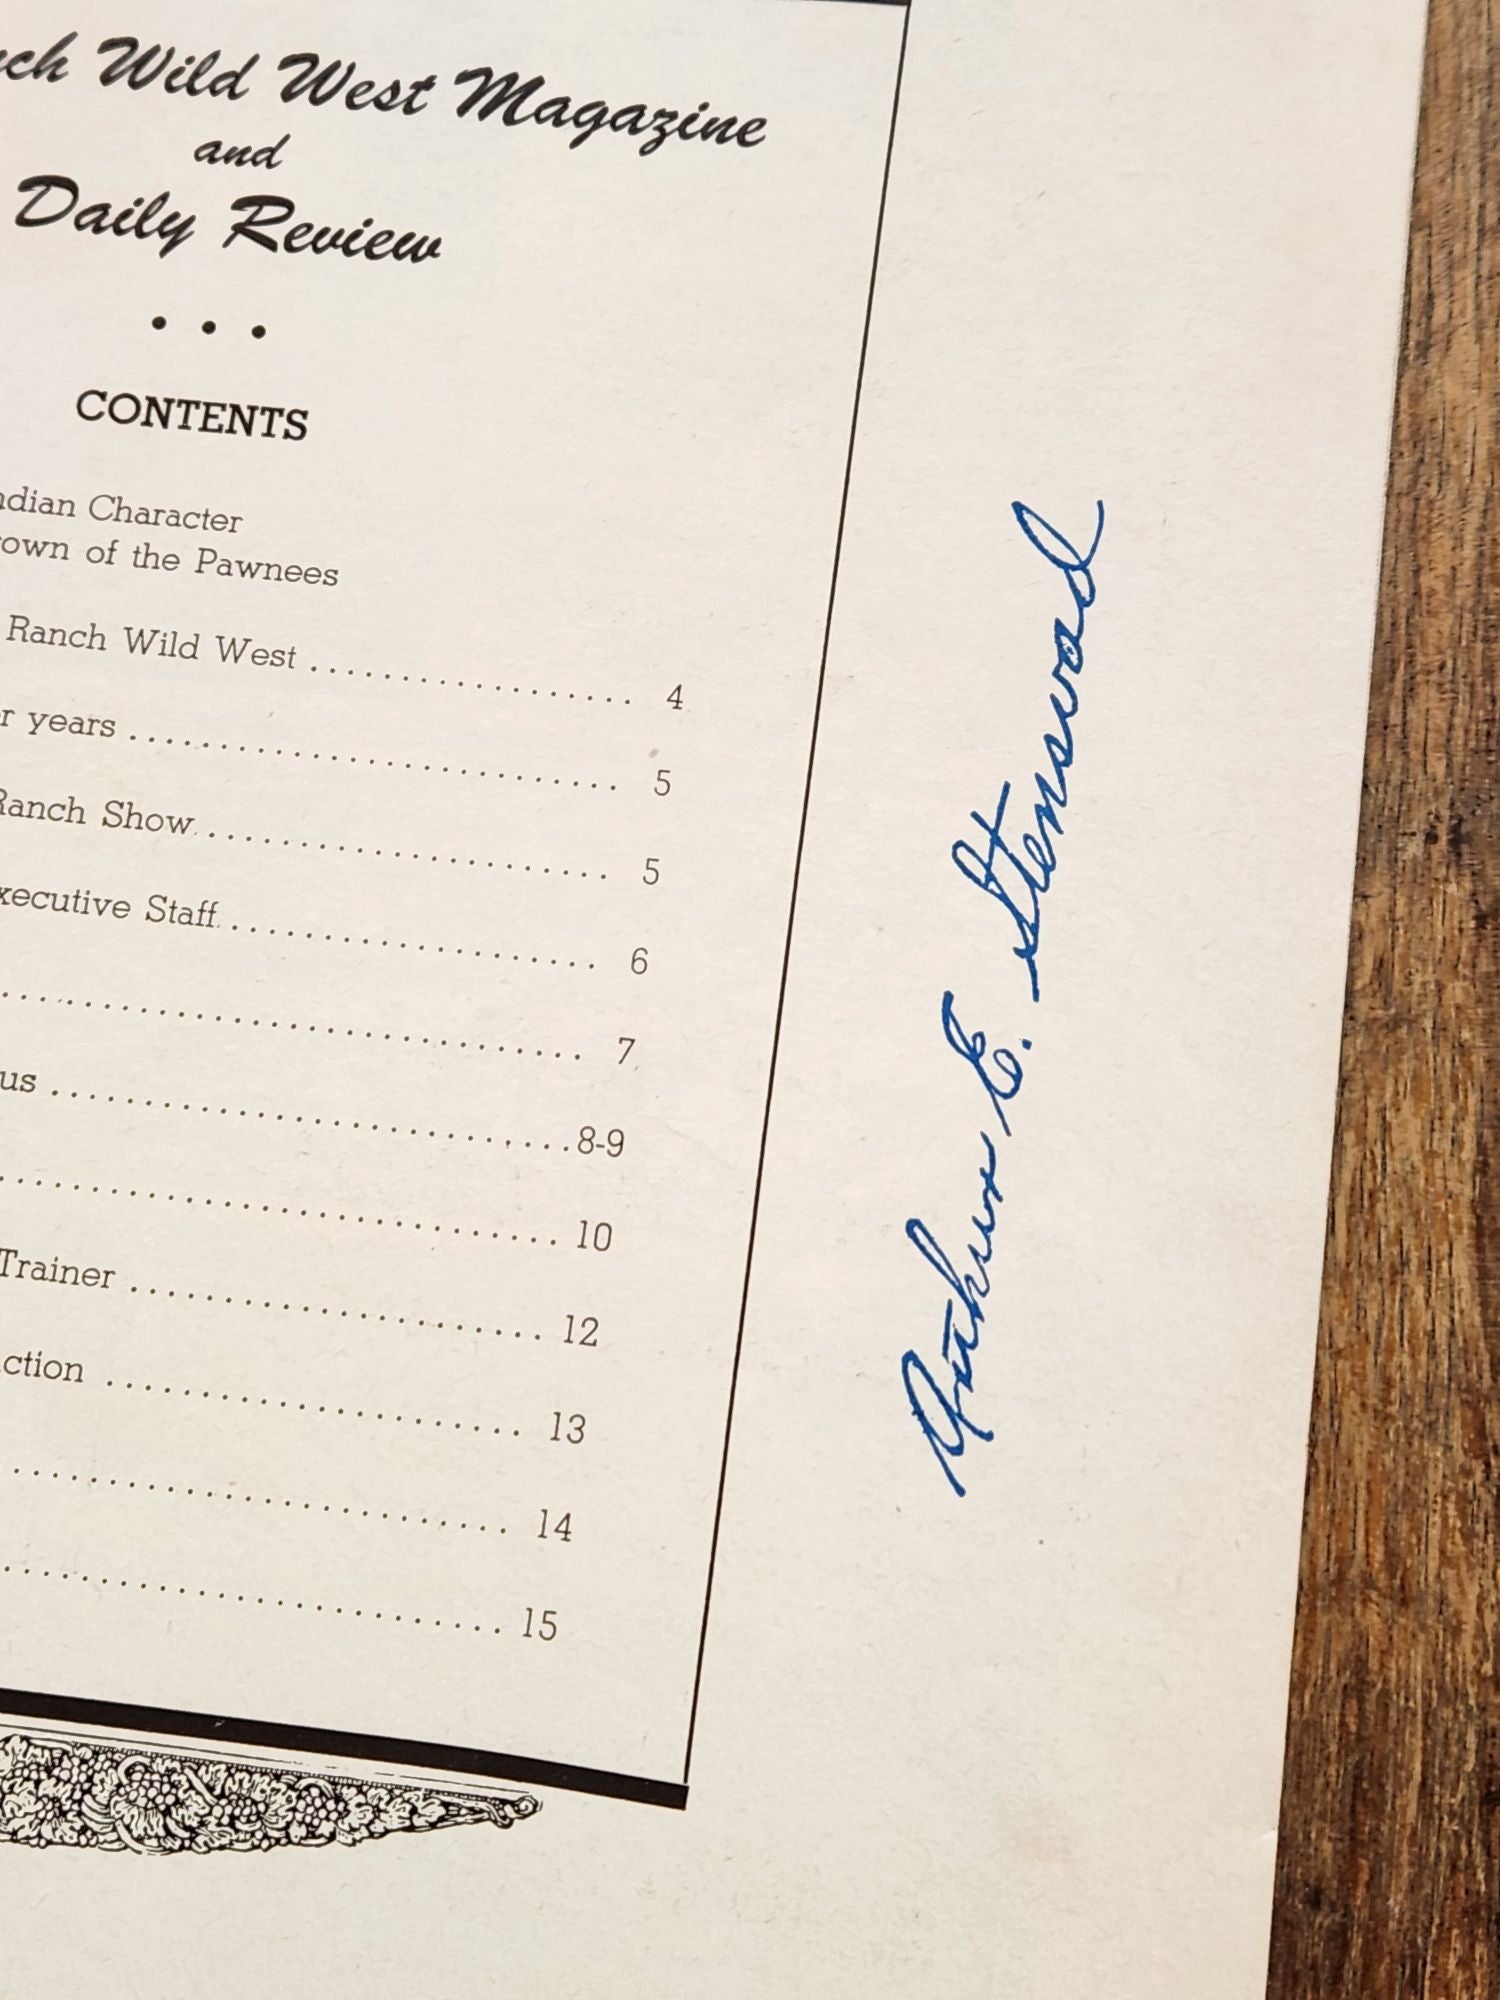 ch Wild West Magazine
and
Daily Review
• • •
CONTENTS
ndian Character
own of the Pawnees
Ranch Wild West .................. 4
r years .............................. 5
Ranch Show ......................... 5
xecutive Staff ........................ 6
....................................... 7
us ..................................8-9
..................................... 10
Trainer ........................... 12
ction ........................... 13
................................ 14
................................ 15
Arthur E. Stensvad